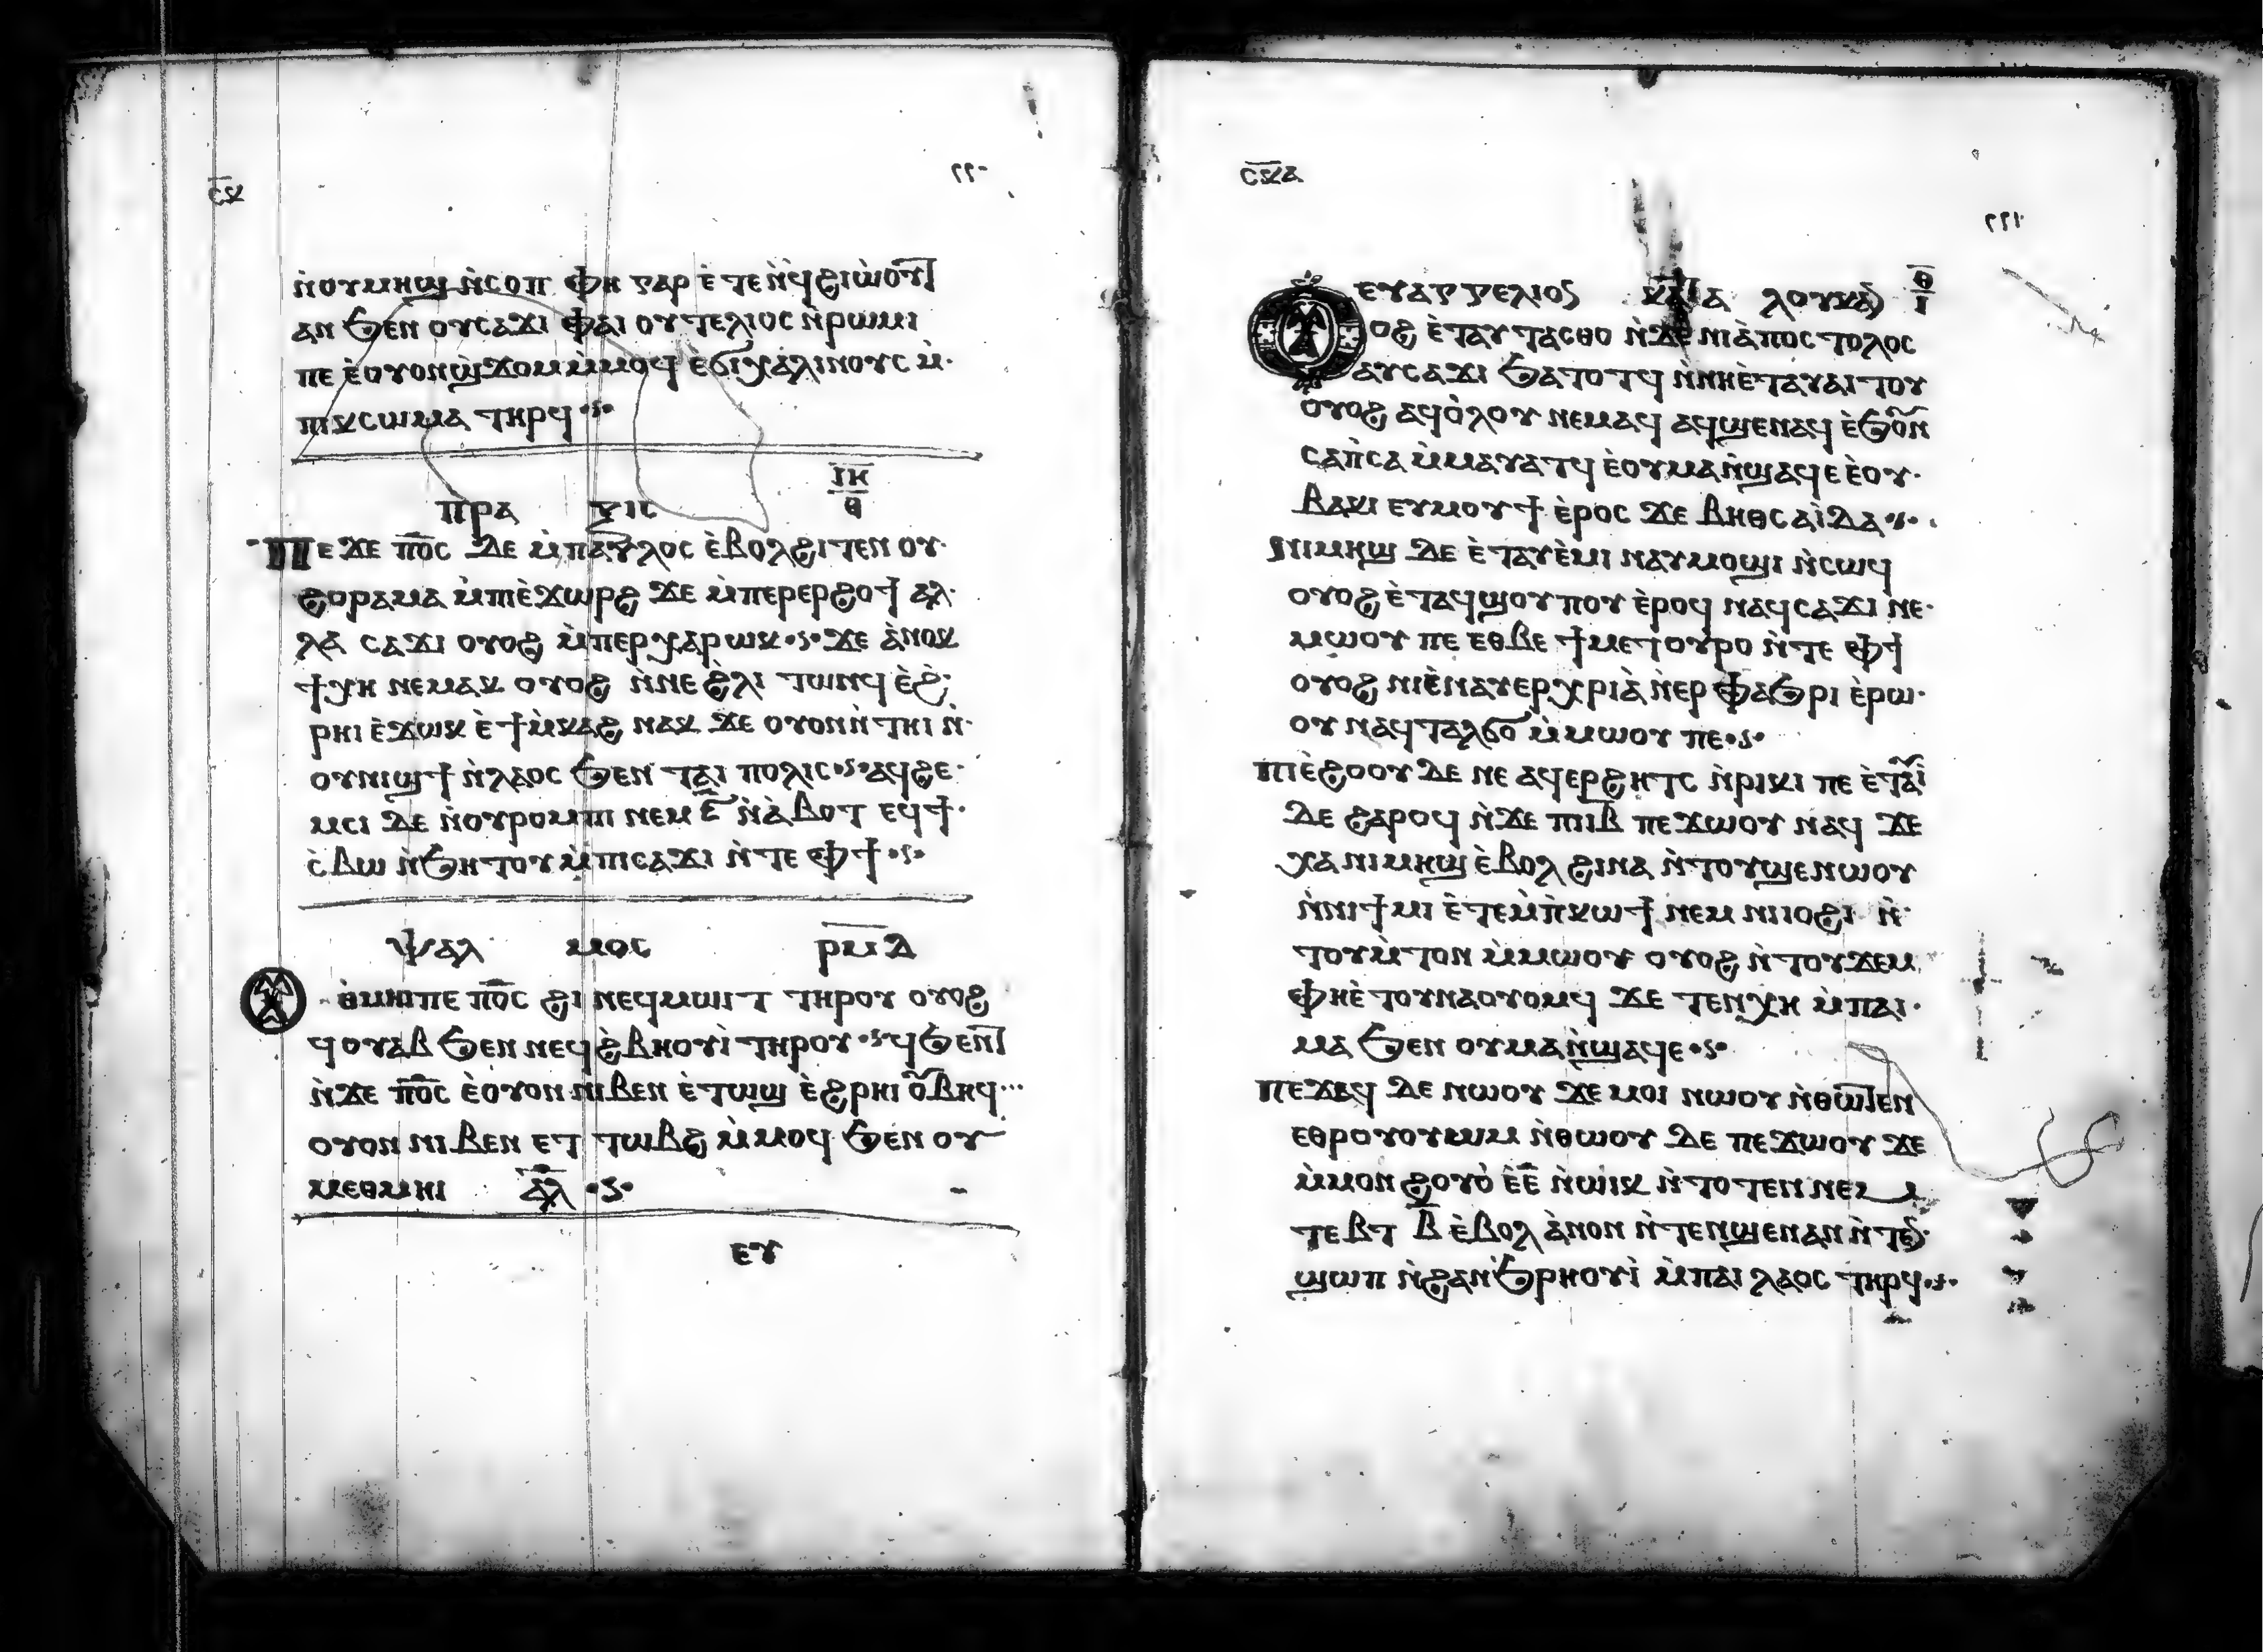 ⲥ̅ⲕ̅
ⲛ̀ⲟⲩⲙⲏϣ ⲛ̀ⲥⲟⲡ ⲫⲏ ⲅⲁⲣ ⲉ̀ⲧⲉⲛ̀ϥϩⲓⲱ̀ⲟⲩϯ
ⲁⲛ ϧⲉⲛ ⲟⲩⲥⲁϫⲓ ⲫⲁⲓ ⲟⲩⲧⲉⲗⲓⲟⲥ ⲛ̀ⲣⲱⲙⲓ
ⲡⲉ ⲉ̀ⲟⲩⲟⲛϣϫⲟⲙ ⲙ̀ⲙⲟϥ ⲉ̀ϭⲓⲭⲁⲗⲓⲛⲟⲩⲥ ⲙ̀
ⲡⲓⲕⲥⲱⲙⲁ ⲧⲏⲣϥ
ⲡⲣⲁ ⲝⲓⲥ ⲓ̅ⲏ̅ ⲑ
ⲡⲉϫⲉ ⲡ̅ⲟ̅ⲥ̅ ⲇⲉ ⲙ̀ⲡⲁⲩⲗⲟⲥ ⲉ̀ⲃⲟⲗϩⲓⲧⲉⲛ ⲟⲩ
ϩⲟⲣⲁⲙⲁ ⲙ̀ⲡⲓⲉ̀ϫⲱⲣϩ ϫⲉ ⲙ̀ⲡⲉⲣⲉⲣϩⲟϯ ⲁⲗ
ⲗⲁ ⲥⲁϫⲓ ⲟⲩⲟϩ ⲙ̀ⲡⲉⲣⲭⲁⲣⲱⲕ ϫⲉ ⲁ̀ⲛⲟⲕ
ϯⲭⲏ ⲛⲉⲙⲁⲕ ⲟⲩⲟϩ ⲛ̀ⲛⲉ ϩ̀ⲗⲓ ⲧⲱⲛϥ ⲉ̀ϩ̀
ⲣⲏⲓ ⲉ̀ϫⲱⲕ ⲉ̀ϯⲙ̀ⲕⲁϩ ⲛⲁⲕ ϫⲉ ⲟⲩⲟⲛⲛ̀ⲧⲏⲓ ⲛ̀
ⲟⲩⲛⲓϣϯ ⲛ̀ⲗⲁⲟⲥ ϧⲉⲛ ⲧⲁⲓ ⲡⲟⲗⲓⲥ ⲁϥϩⲉ
ⲙⲥⲓ ⲇⲉ ⲛ̀ⲟⲩⲣⲟⲙⲡⲓ ⲛⲉⲙ ⲋ̅ ⲛ̀ⲁ̀ⲃⲟⲧ ⲉϥϯ
ⲥ̀ⲃⲱ ⲛ̀ϧⲏⲧⲟⲩ ⲙ̀ⲡⲓⲥⲁϫⲓ ⲛ̀ⲧⲉ ⲫϯ
ⲯⲁⲗ ⲙⲟⲥ ⲣ̅ⲙ̅ⲇ̅
ⲟ̀ⲑⲙⲏⲓ ⲡⲉ ⲡ̅ⲟ̅ⲥ̅ ϩⲓ ⲛⲉϥⲙⲱⲓⲧ ⲧⲏⲣⲟⲩ ⲟⲩⲟϩ
ϥⲟⲩⲁⲃ ϧⲉⲛ ⲛⲉϥϩ̀ⲃⲏⲟⲩⲓ̀ ⲧⲏⲣⲟⲩ ϥϧⲉⲛⲧ
ⲛ̀ϫⲉ ⲡ̅ⲟ̅ⲥ̅ ⲉ̀ⲟⲩⲟⲛ ⲛⲓⲃⲉⲛ ⲉ̀ⲧⲱϣ ⲉ̀ϩⲣⲏⲓ ⲟⲩⲃⲏϥ
ⲟⲩⲟⲛ ⲛⲓⲃⲉⲛ ⲉⲧ ⲧⲱⲃϩ ⲙ̀ⲙⲟϥ ϧⲉⲛ ⲟⲩ
ⲙⲉⲑⲙⲏⲓ ⲁ̅ⲗ̅
ⲉⲩ
ⲥ̅ⲕ̅ⲁ̅
ⲉⲩⲁⲅⲅⲉⲗⲓⲟⲥ ⲕⲁⲧⲁ ⲗⲟⲩⲕⲁⲥ ⲑ̅ ⲓ
ⲟⲩⲟϩ ⲉ̀ⲧⲁⲩⲧⲁⲥⲑⲟ ⲛ̀ϫⲉ ⲛⲓⲁ̀ⲡⲟⲥⲧⲟⲗⲟⲥ
ⲁⲩⲥⲁϫⲓ ϧⲁⲧⲟⲧϥ ⲛ̀ⲛⲏⲉ̀ⲧⲁⲩⲁⲓⲧⲟⲩ
ⲟⲩⲟϩ ⲁϥⲟ̀ⲗⲟⲩ ⲛⲉⲙⲁϥ ⲁϥϣⲉⲛⲁϥ ⲉ̀ϧⲟⲩⲛ
ⲥⲁⲡ̀ⲥⲁ ⲙ̀ⲙⲁⲩⲁⲧϥ ⲉ̀ⲟⲩⲙⲁⲛ̀ϣⲁϥⲉ ⲉ̀ⲟⲩ
ⲃⲁⲕⲓ ⲉⲩⲙⲟⲩϯ ⲉ̀ⲣⲟⲥ ϫⲉ ⲃⲏⲑⲥⲁⲓ̀ⲇⲁ
ⲛⲓⲙⲏϣ ⲇⲉ ⲉ̀ⲧⲁⲩⲉ̀ⲙⲓ ⲛⲁⲩⲙⲟϣⲓ ⲛ̀ⲥⲱϥ
ⲟⲩⲟϩ ⲉ̀ⲧⲁϥϣⲟⲡⲟⲩ ⲉ̀ⲣⲟϥ ⲛⲁϥⲥⲁϫⲓ ⲛⲉ
ⲙⲱⲟⲩ ⲡⲉ ⲉⲑⲃⲉ ϯⲙⲉⲧⲟⲩⲣⲟ ⲛ̀ⲧⲉ ⲫϯ
ⲟⲩⲟϩ ⲛⲓⲉ̀ⲛⲁⲩⲉⲣⲭⲣⲓⲁ̀ ⲛ̀ⲉⲣ ⲫⲁϧⲣⲓ ⲉ̀ⲣⲱ
ⲟⲩ ⲛⲁϥⲧⲁⲗϭⲟ ⲙ̀ⲙⲱⲟⲩ ⲡⲉ
ⲡⲓⲉ̀ϩⲟⲟⲩ ⲇⲉ ⲛⲉ ⲁϥⲉⲣϩⲏⲧⲥ ⲛ̀ⲣⲓⲕⲓ ⲡⲉ ⲉ̀ⲧⲁⲩⲓ̀
ⲇⲉ ϩⲁⲣⲟϥ ⲛ̀ϫⲉ ⲡⲓⲓ̅ⲃ̅ ⲡⲉϫⲱⲟⲩ ⲛⲁϥ ϫⲉ
ⲭⲁ ⲛⲓⲙⲏϣ ⲉ̀ⲃⲟⲗ ϩⲓⲛⲁ ⲛ̀ⲧⲟⲩϣⲉⲛⲱⲟⲩ
ⲛ̀ⲛⲓϯⲙⲓ ⲉ̀ⲧⲉⲙ̀ⲡ̀ⲕⲱϯ ⲛⲉⲙ ⲛⲓⲓⲟϩⲓ ⲛ̀
ⲧⲟⲩⲙ̀ⲧⲟⲛ ⲙ̀ⲙⲱⲟⲩ ⲟⲩⲟϩ ⲛ̀ⲧⲟⲩϫⲉⲙ
ⲫⲏⲉ̀ⲧⲟⲩⲛⲁⲟⲩⲟⲙϥ ϫⲉ ⲧⲉⲛⲭⲏ ⲙ̀ⲡⲁⲓ
ⲙⲁ ϧⲉⲛ ⲟⲩⲙⲁⲛ̀ϣⲁϥⲉ
ⲡⲉϫⲁϥ ⲇⲉ ⲛⲱⲟⲩ ϫⲉ ⲙⲟⲓ ⲛⲱⲟⲩ ⲛ̀ⲑⲱⲧⲉⲛ
ⲉⲑⲣⲟⲩⲟⲩⲱⲙ ⲛ̀ⲑⲱⲟⲩ ⲇⲉ ⲡⲉϫⲱⲟⲩ ϫⲉ
ⲙ̀ⲙⲟⲛ ϩⲟⲩⲟ̀ ⲉ̀ⲉ̅ ⲛ̀ⲱⲓⲕ ⲛ̀ⲧⲟⲧⲉⲛ ⲛⲉⲙ
ⲧⲉⲃⲧ ⲃ̅ ⲉ̀ⲃⲟⲗ ⲁ̀ⲛⲟⲛ ⲛ̀ⲧⲉⲛϣⲉⲛⲁⲛ ⲛ̀ⲧⲉⲛ
ϣⲱⲡ ⲛ̀ϩⲁⲛϧⲣⲏⲟⲩⲓ̀ ⲙ̀ⲡⲁⲓ ⲗⲁⲟⲥ ⲧⲏⲣϥ